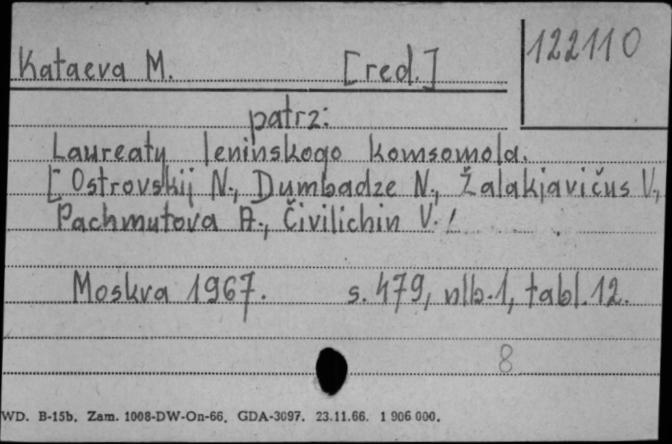 Kataeva M. [red.] 122110
patrz:
Laureaty leninskogo komsomola.
[Ostrovskij N., Dumbadze N., Žalakjavičus V.,
Pachmutova A., Čivilichin V.
Moskva 1967. s. 479, nlb. 1, tabl. 12.
8
WD. B-15b. Zam. 1008-DW-On-66. GDA-3097. 23.11.66. 1 906 000.